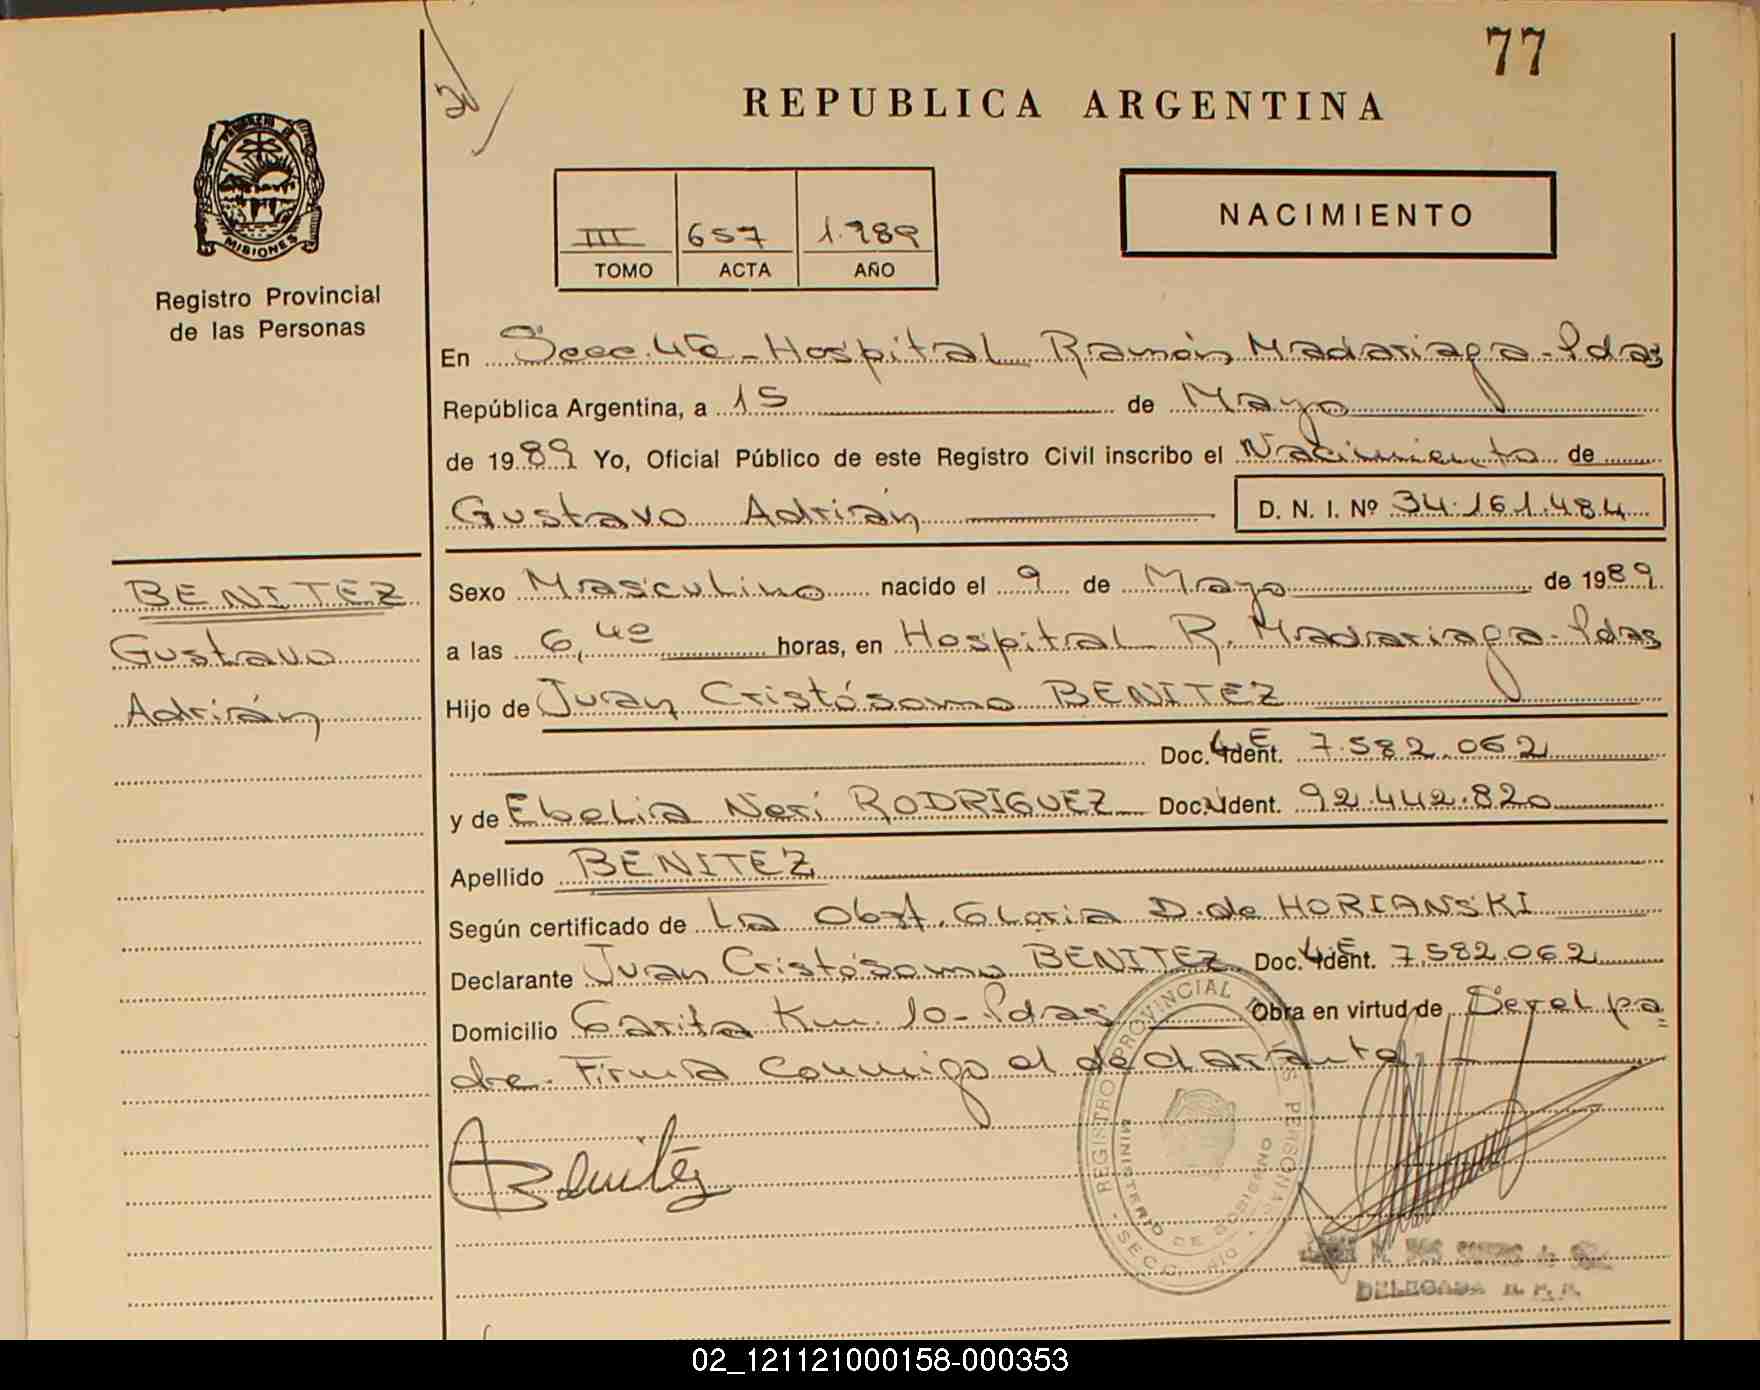 77
REPUBLICA ARGENTINA
MISIONES
Registro Provincial
de las Personas
III 657 1.989
TOMO ACTA AÑO
NACIMIENTO
En Secc. 4ta - Hospital Ramón Madariaga - Pdas
República Argentina, a 15 de Mayo
de 1989 Yo, Oficial Público de este Registro Civil inscribo el Nacimiento de
Gustavo Adrián D. N. I. Nº 34.161.484
BENITEZ
Gustavo
Adrián
Sexo Masculino nacido el 9 de Mayo de 1989
a las 6,40 horas, en Hospital R. Madariaga - Pdas
Hijo de Juan Cristósomo BENITEZ
Doc. Ident. 7.582.062
y de Ebelia Neri RODRIGUEZ Doc. Ident. 92.442.820
Apellido BENITEZ
Según certificado de La Obst. Gloria D. de HORIANSKI
Declarante Juan Cristósomo BENITEZ Doc. Ident. 7.582.062
Domicilio Garita Km. 10 - Pdas Obra en virtud de Ser el pa
dre. Firma conmigo el declarante
Benitez
REGISTRO PROVINCIAL DE LAS PERSONAS
MINISTERIO DE GOBIERNO
SECC.
DELEGADA R. P. P.
02_121121000158-000353